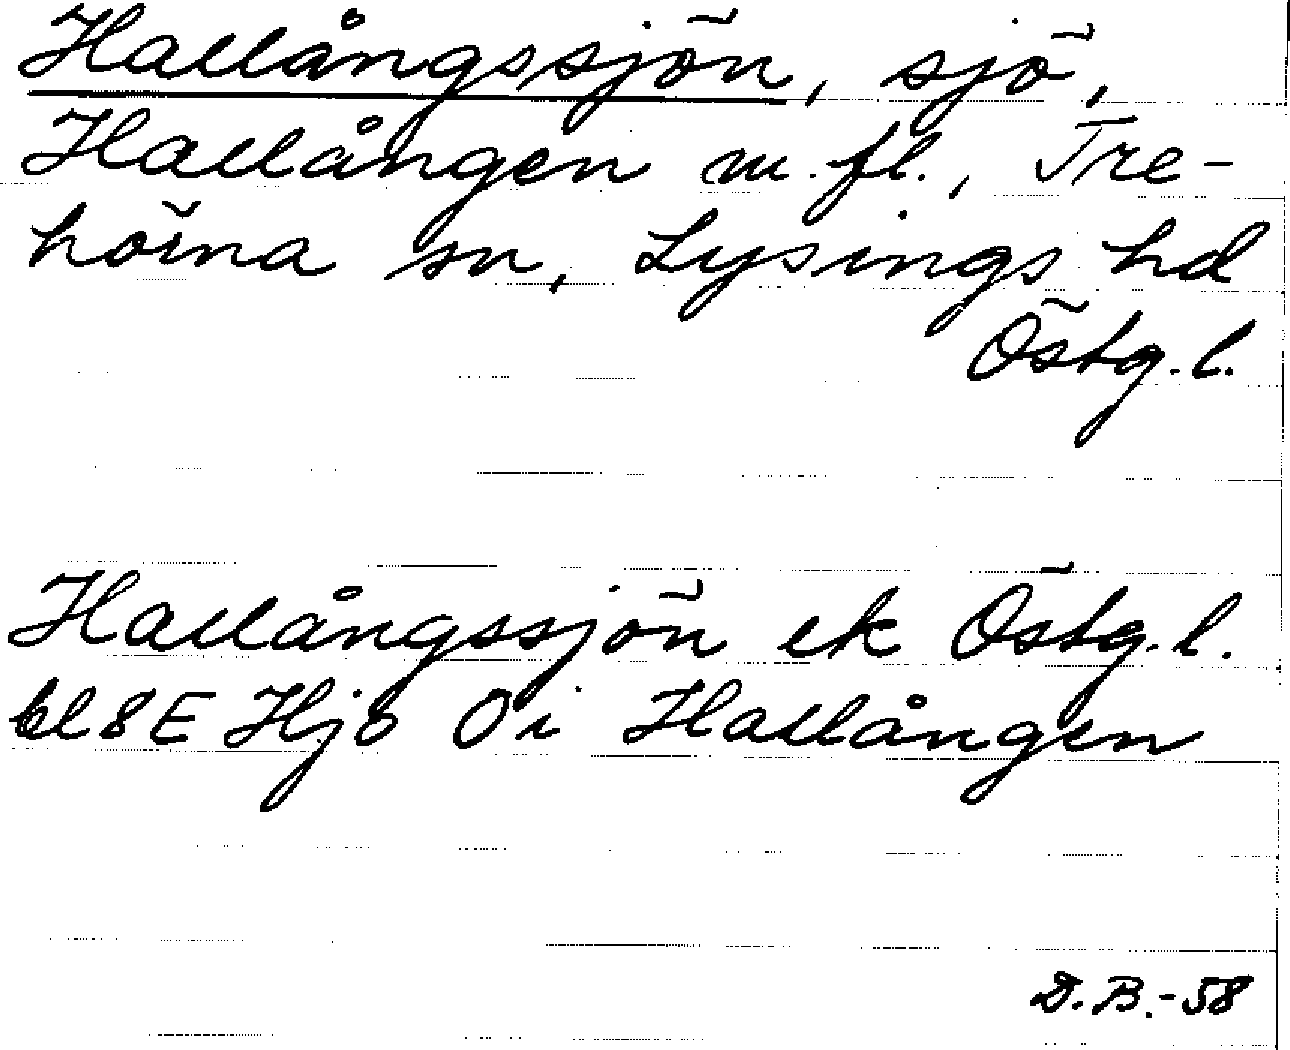 Hallångssjön, sjö,
Hallången m. fl., Tre-
hörna sn, Lysings hd
Östg. l.
Hallångssjön ek Östg. l.
bl 8 E Hjo 0 i Hallången
D. B. -58